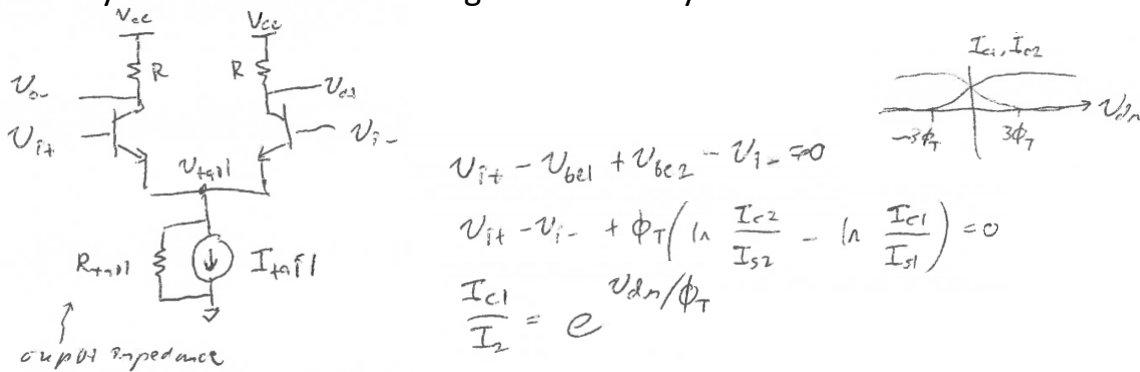 Vcc
Vcc
R
R
Vo-
Vi+
Vi-
Vtail
Rtail
Itail
output impedance
Ic1, Ic2
Vdm
-3ϕT
3ϕT
Vi+ - Vbe1 + Vbe2 - Vi- = 0
Vi+ - Vi- + ϕT(ln Ic2/Is2 - ln Ic1/Is1) = 0
Ic1/I2 = e^Vdm/ϕT